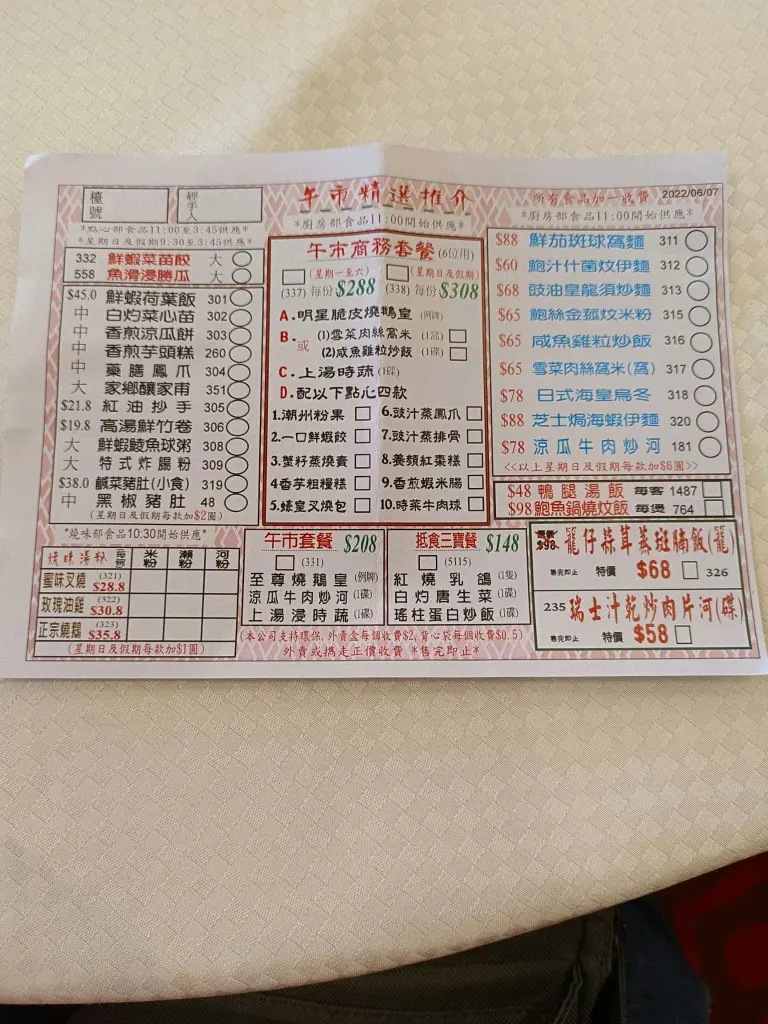 檯號
經手人
午市精選推介
所有食品加一收費 2022/06/07
*點心部食品11:00至3:45供應*
*星期日及假期9:30至3:45供應*
*廚房部食品11:00開始供應*
*廚房部食品11:00開始供應*
332 鮮蝦菜苗餃 大
558 魚滑浸勝瓜 大
$45.0 鮮蝦荷葉飯 301
中 白灼菜心苗 302
中 香煎涼瓜餅 303
中 香煎芋頭糕 260
中 藥膳鳳爪 304
大 家鄉釀家甫 351
$21.8 紅油抄手 305
$19.8 高湯鮮竹卷 306
大 鮮蝦鯪魚球粥 308
大 特式炸腸粉 309
$38.0 鹹菜豬肚(小食) 319
中 黑椒豬肚 48
(星期日及假期每款加$2圓)
午市商務套餐 (6位用)
(星期一至六)
(337) 每份$288
(星期日及假期)
(338) 每份$308
A.明星脆皮燒鵝皇(例牌)
B.或
(1)雪菜肉絲窩米(1窩)
(2)咸魚雞粒炒飯(1碟)
C.上湯時蔬(1碟)
D.配以下點心四款
1.潮州粉果
2.一口鮮蝦餃
3.蟹籽蒸燒賣
4香芋粗糧糕
5.蠔皇叉燒包
6.豉汁蒸鳳爪
7.豉汁蒸排骨
8.養顏紅棗糕
9.香煎蝦米腸
10.時菜牛肉球
$88 鮮茄斑球窩麵 311
$60 鮑汁什菌炆伊麵 312
$68 豉油皇龍須炒麵 313
$65 鮑絲金菰炆米粉 315
$65 咸魚雞粒炒飯 316
$65 雪菜肉絲窩米(窩) 317
$78 日式海皇烏冬 318
$88 芝士焗海蝦伊麵 320
$78 涼瓜牛肉炒河 181
<<以上星期日及假期每款加$6圓>>
$48 鴨腿湯飯 每客 1487
$98鮑魚鍋燒炆飯 每煲 764
*燒味部食品10:30開始供應*
燒味湯粉 每碗 米粉 瀨粉 河粉
蜜味叉燒 (321) $28.8
玫瑰油雞 (322) $30.8
正宗燒鵝 (323) $35.8
(星期日及假期每款加$1圓)
午市套餐 $208
(331)
至尊燒鵝皇(例牌)
涼瓜牛肉炒河(1碟)
上湯浸時蔬(1碟)
抵食三寶餐 $148
(5115)
紅燒乳鴿(1隻)
白灼唐生菜(1碟)
瑤柱蛋白炒飯(1碟)
(本公司支持環保,外賣盒每個收費$2,背心袋每個收費$0.5)
外賣或攜走正價收費 *售完即止*
$98 籠仔蒜茸蒸斑腩飯(籠)
售完即止 特價 $68 326
235 瑞士汁乾炒肉片河(碟)
售完即止 特價 $58